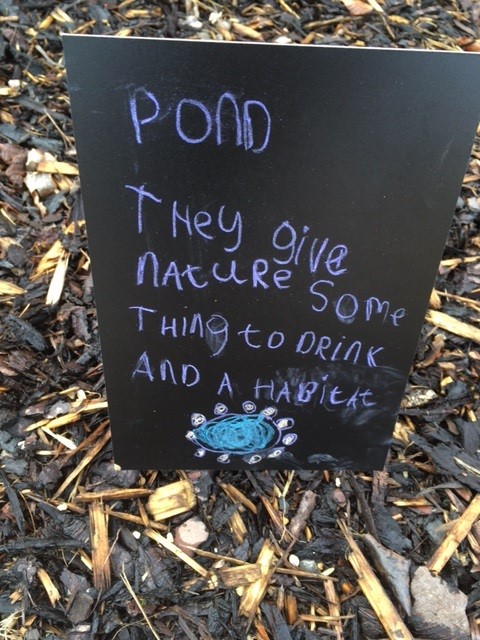 POND
THey give
NAtURe SOMe
THING to DRINK
AND A HABitAt